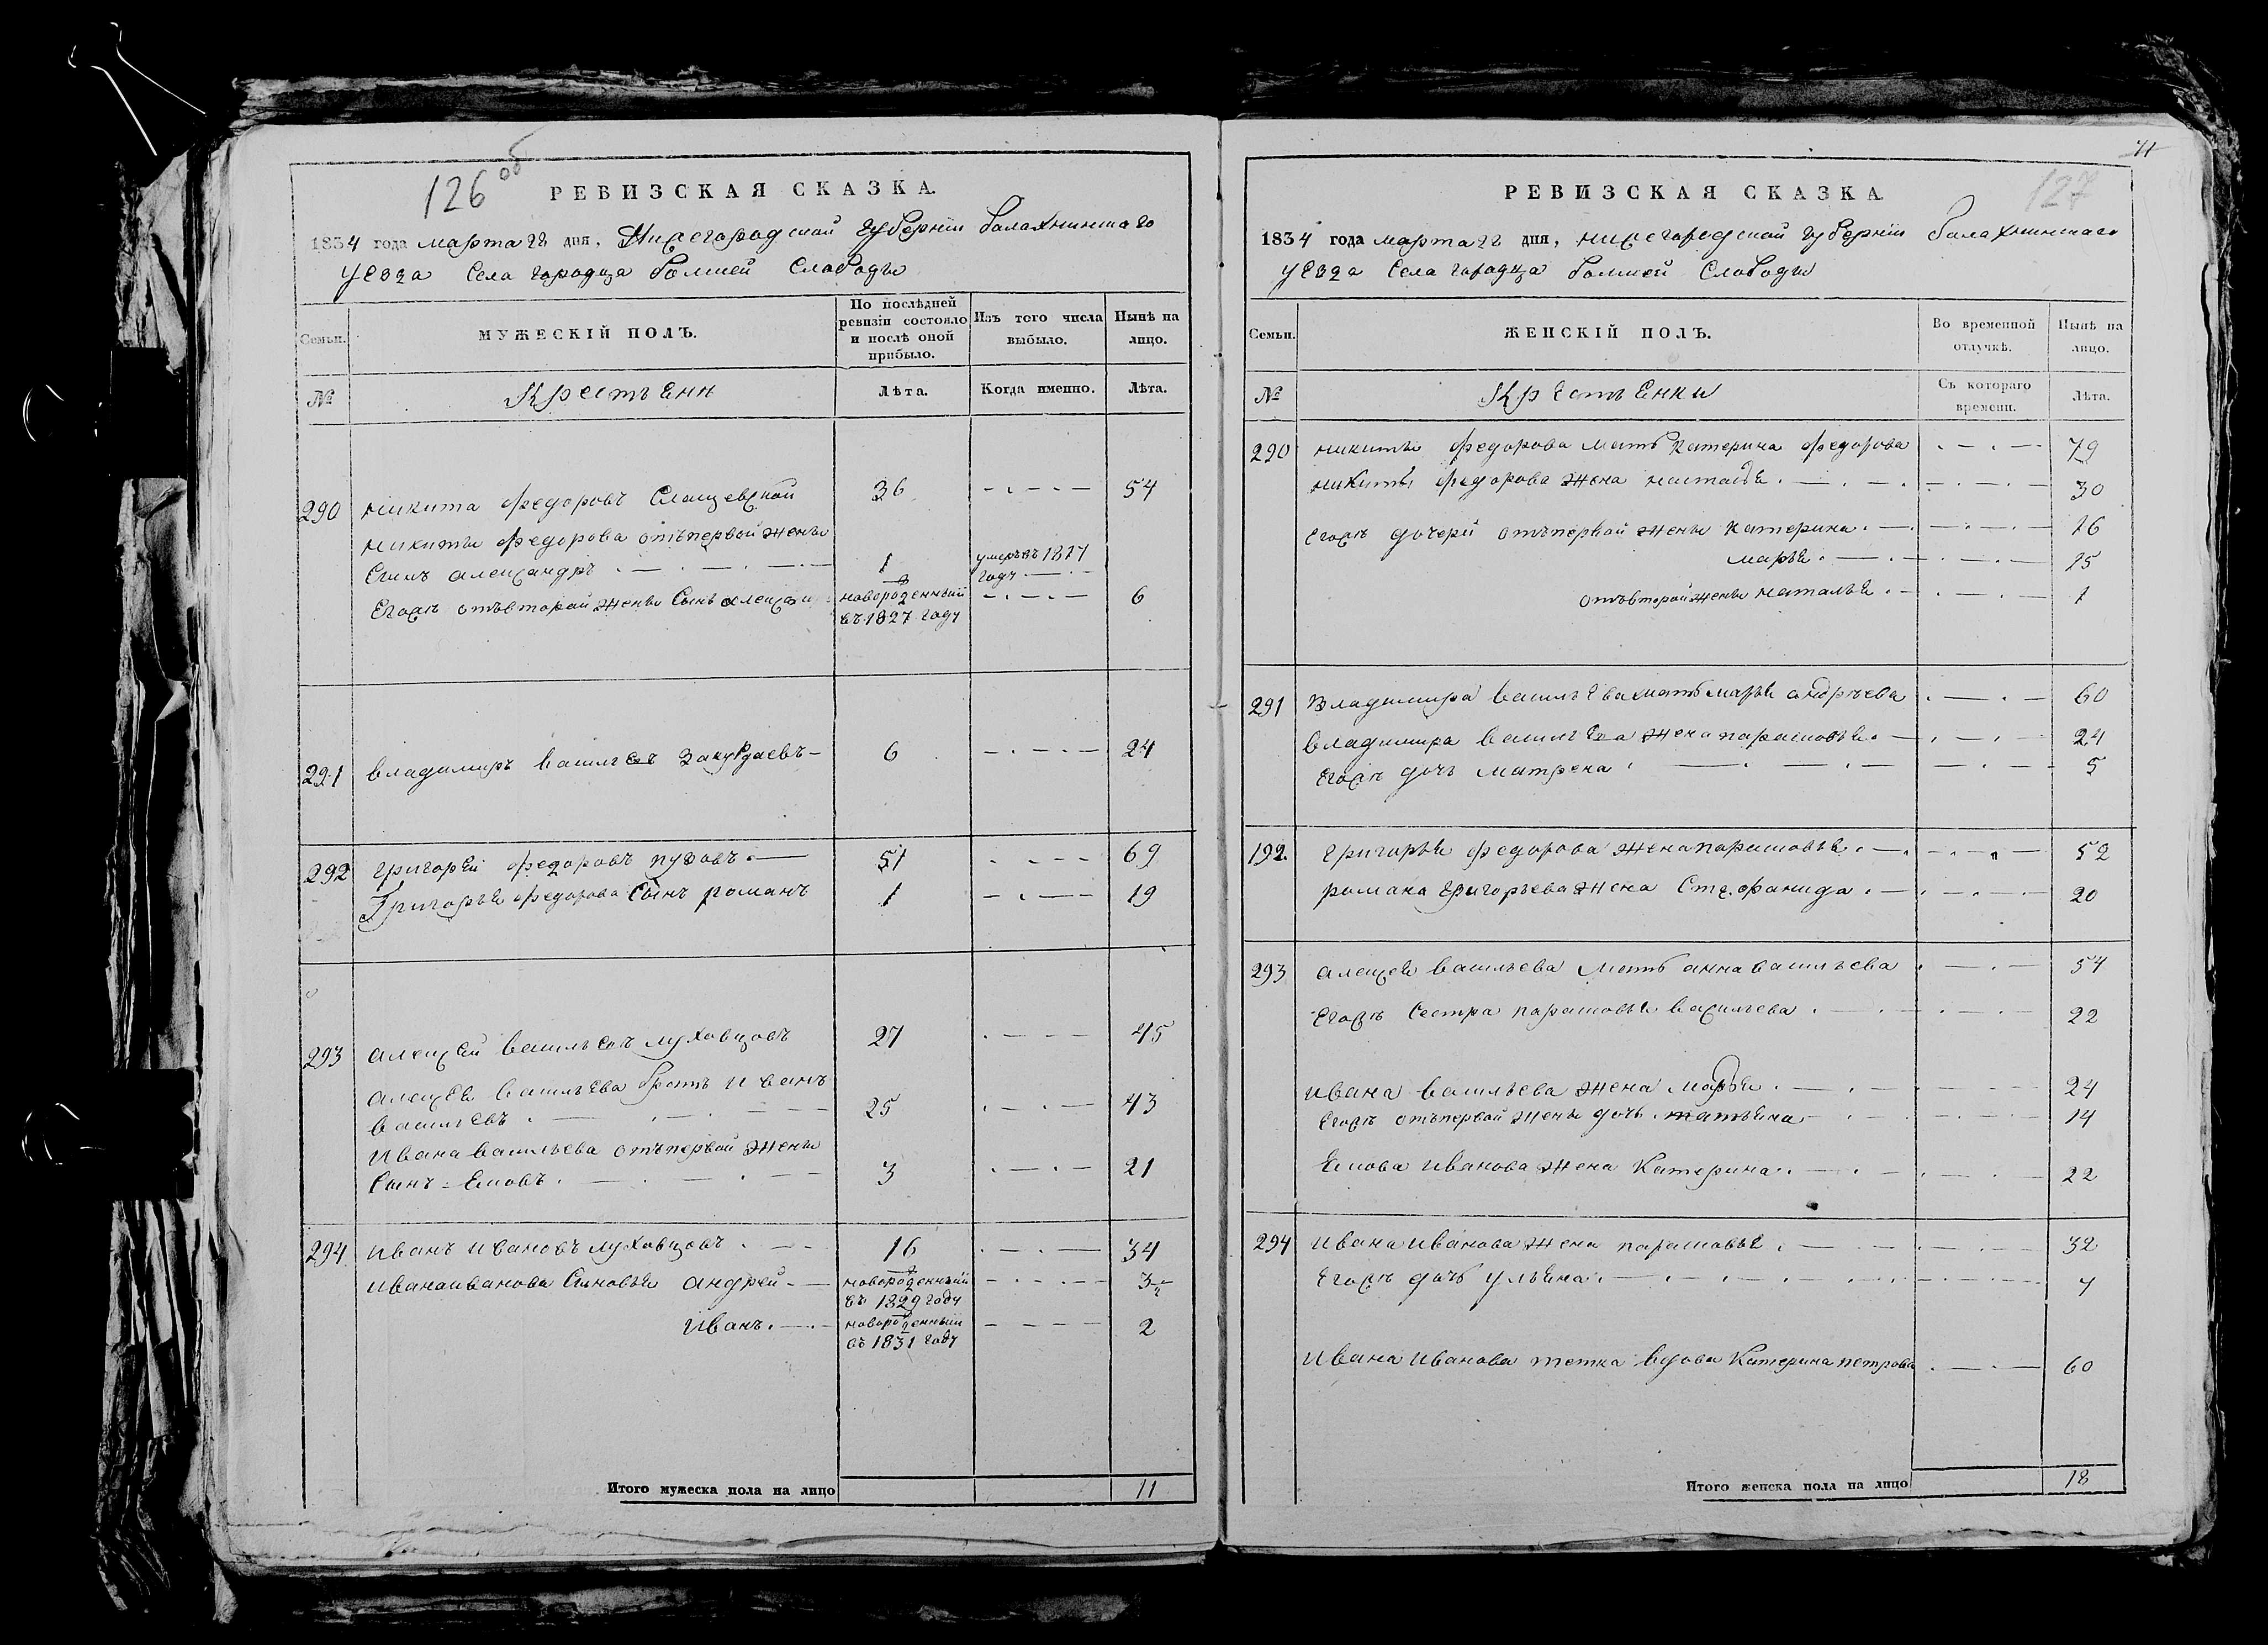 126 об
РЕВИЗСКАЯ СКАЗКА.
1834 года марта 22 дня, Нижегородской губернiи балахнинскаго
уезда Села городца болшей Слободы
Семьи. МУЖЕСКIЙ ПОЛЪ. По послѣдней ревизiи состояло и послѣ оной прибыло. Изъ того числа выбыло. Нынѣ на лицо.
№ Крестьени Лѣта. Когда именно. Лѣта.
290 никита федоровъ 36 54
никиты федорова отъпервой жены
Сынъ александръ 1 умеръвъ 1817 году
Егожъ отъвторой жены Сынъ новорожденный въ 1827 году 6
291 владимиръ васильевъ Закурдаевъ 6 24
292 григорей федоровъ пузовъ 51 69
Григорья федорова Сынъ романъ 1 19
293 алексей васильевъ луховцовъ 27 45
алексея васильева братъ иванъ
васильевъ 25 43
ивана васильева отъпервой жены
Сынъ Емовъ 3 21
294 иванъ ивановъ луховцовъ 16 34
иванаиванова Сыновья андрей новорожденный въ 1829 году 3
иванъ новорожденный въ 1831 году 2
Итого мужеска пола на лицо 11
127
РЕВИЗСКАЯ СКАЗКА
1834 года марта 22 дня, нижегородской губернiи балахнинскаго
уезда Села городца болшей Слободы
Семьи. ЖЕНСКIЙ ПОЛЪ. Во временной отлучкѣ. Нынѣ на лицо.
№ Крестьенки Съ котораго времени. Лѣта.
290 никиты федорова мать катерина федорова 79
никиты федорова жена наталья 30
Егожъ дочери отъпервой жены катерина 16
марья 15
отъвторой жены наталья 1
291 Владимира васильева мать марья андреева 60
владимира васильева жена парасковья 24
Егожъ дочь матрена 5
192. григорья федорова жена парасковья 52
романа григорьева жена Стефанида 20
293 алексея васильева мать анна васильева 54
Егожъ Сестра парасковья васильева 22
ивана васильева жена марья 24
Егожъ отъпервой жены дочь татьяна 14
Емова иванова жена Катерина 22
294 ивана иванова жена парасковья 32
Егожъ дочь ульяна 7
ивана иванова тетка вдова Катерина петрова 60
Итого женска пола на лицо 18